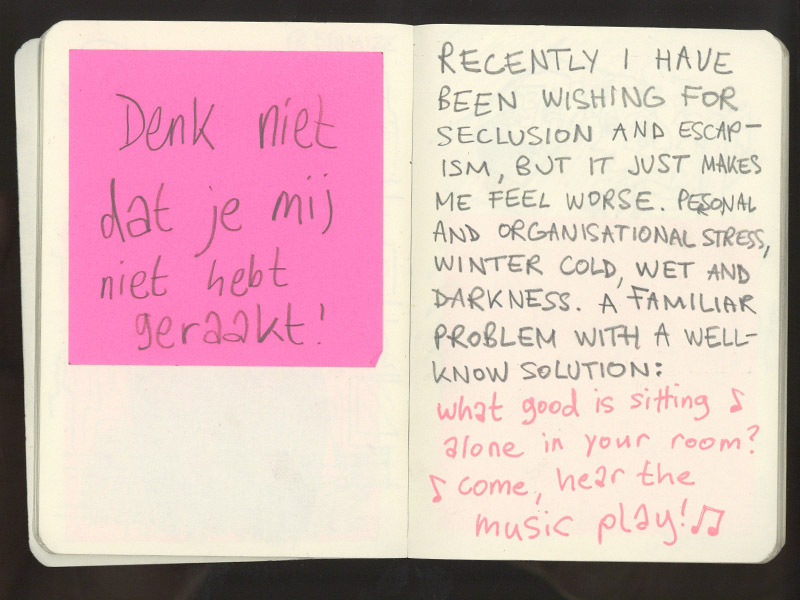 Denk niet
dat je mij
niet hebt
geraakt!
RECENTLY I HAVE
BEEN WISHING FOR
SECLUSION AND ESCAP-
ISM, BUT IT JUST MAKES
ME FEEL WORSE. PERSONAL
AND ORGANISATIONAL STRESS,
WINTER COLD, WET AND
DARKNESS. A FAMILIAR
PROBLEM WITH A WELL-
KNOW SOLUTION:
what good is sitting ♪
alone in your room?
♪ come, hear the
music play! ♫